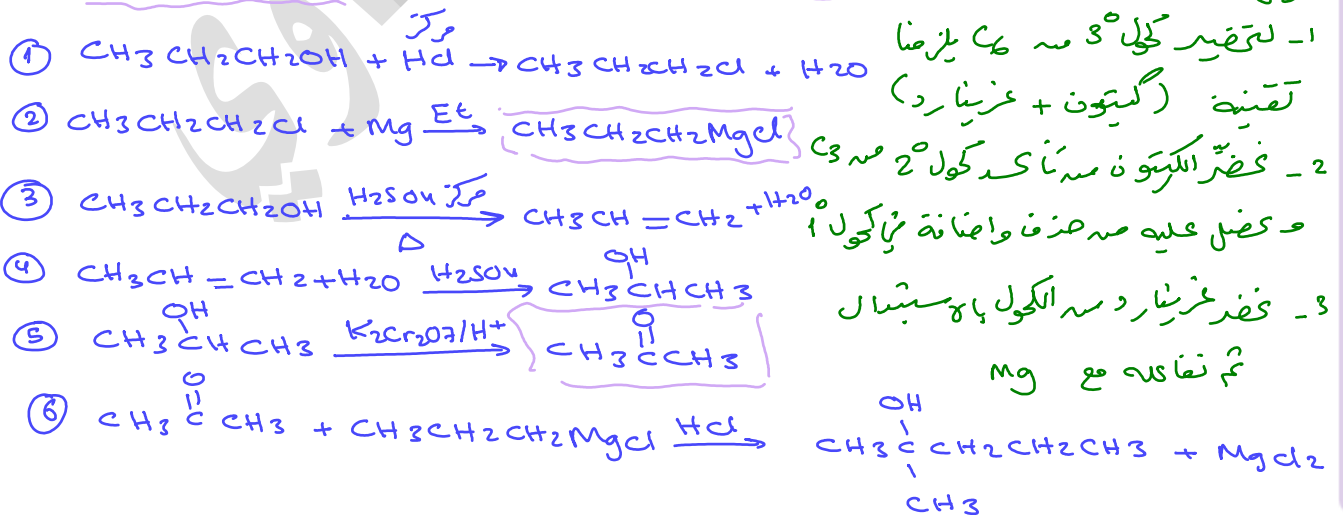 ① CH3CH2CH2OH + HCl مركز → CH3CH2CH2Cl + H2O
② CH3CH2CH2Cl + Mg Et → CH3CH2CH2MgCl
③ CH3CH2CH2OH H2SO4 مركز Δ → CH3CH=CH2 + H2O
④ CH3CH=CH2 + H2O H2SO4 → CH3CHCH3
OH
⑤ CH3CHCH3 K2Cr2O7/H+ → CH3CCH3
OH
O
⑥ CH3CCH3 + CH3CH2CH2MgCl HCl → CH3CCH2CH2CH3 + MgCl2
O
OH
CH3
1- لتحضير كحول 3° من C6 يلزمنا
تقنية (كيتون + غرينارد)
2- نحضّر الكيتون من تأكسد كحول 2° من C3
و نحصل عليه من حذف وإضافة في كحول 1°
3- نحضر غرينارد من الكحول بالاستبدال
ثم نفاعله مع Mg